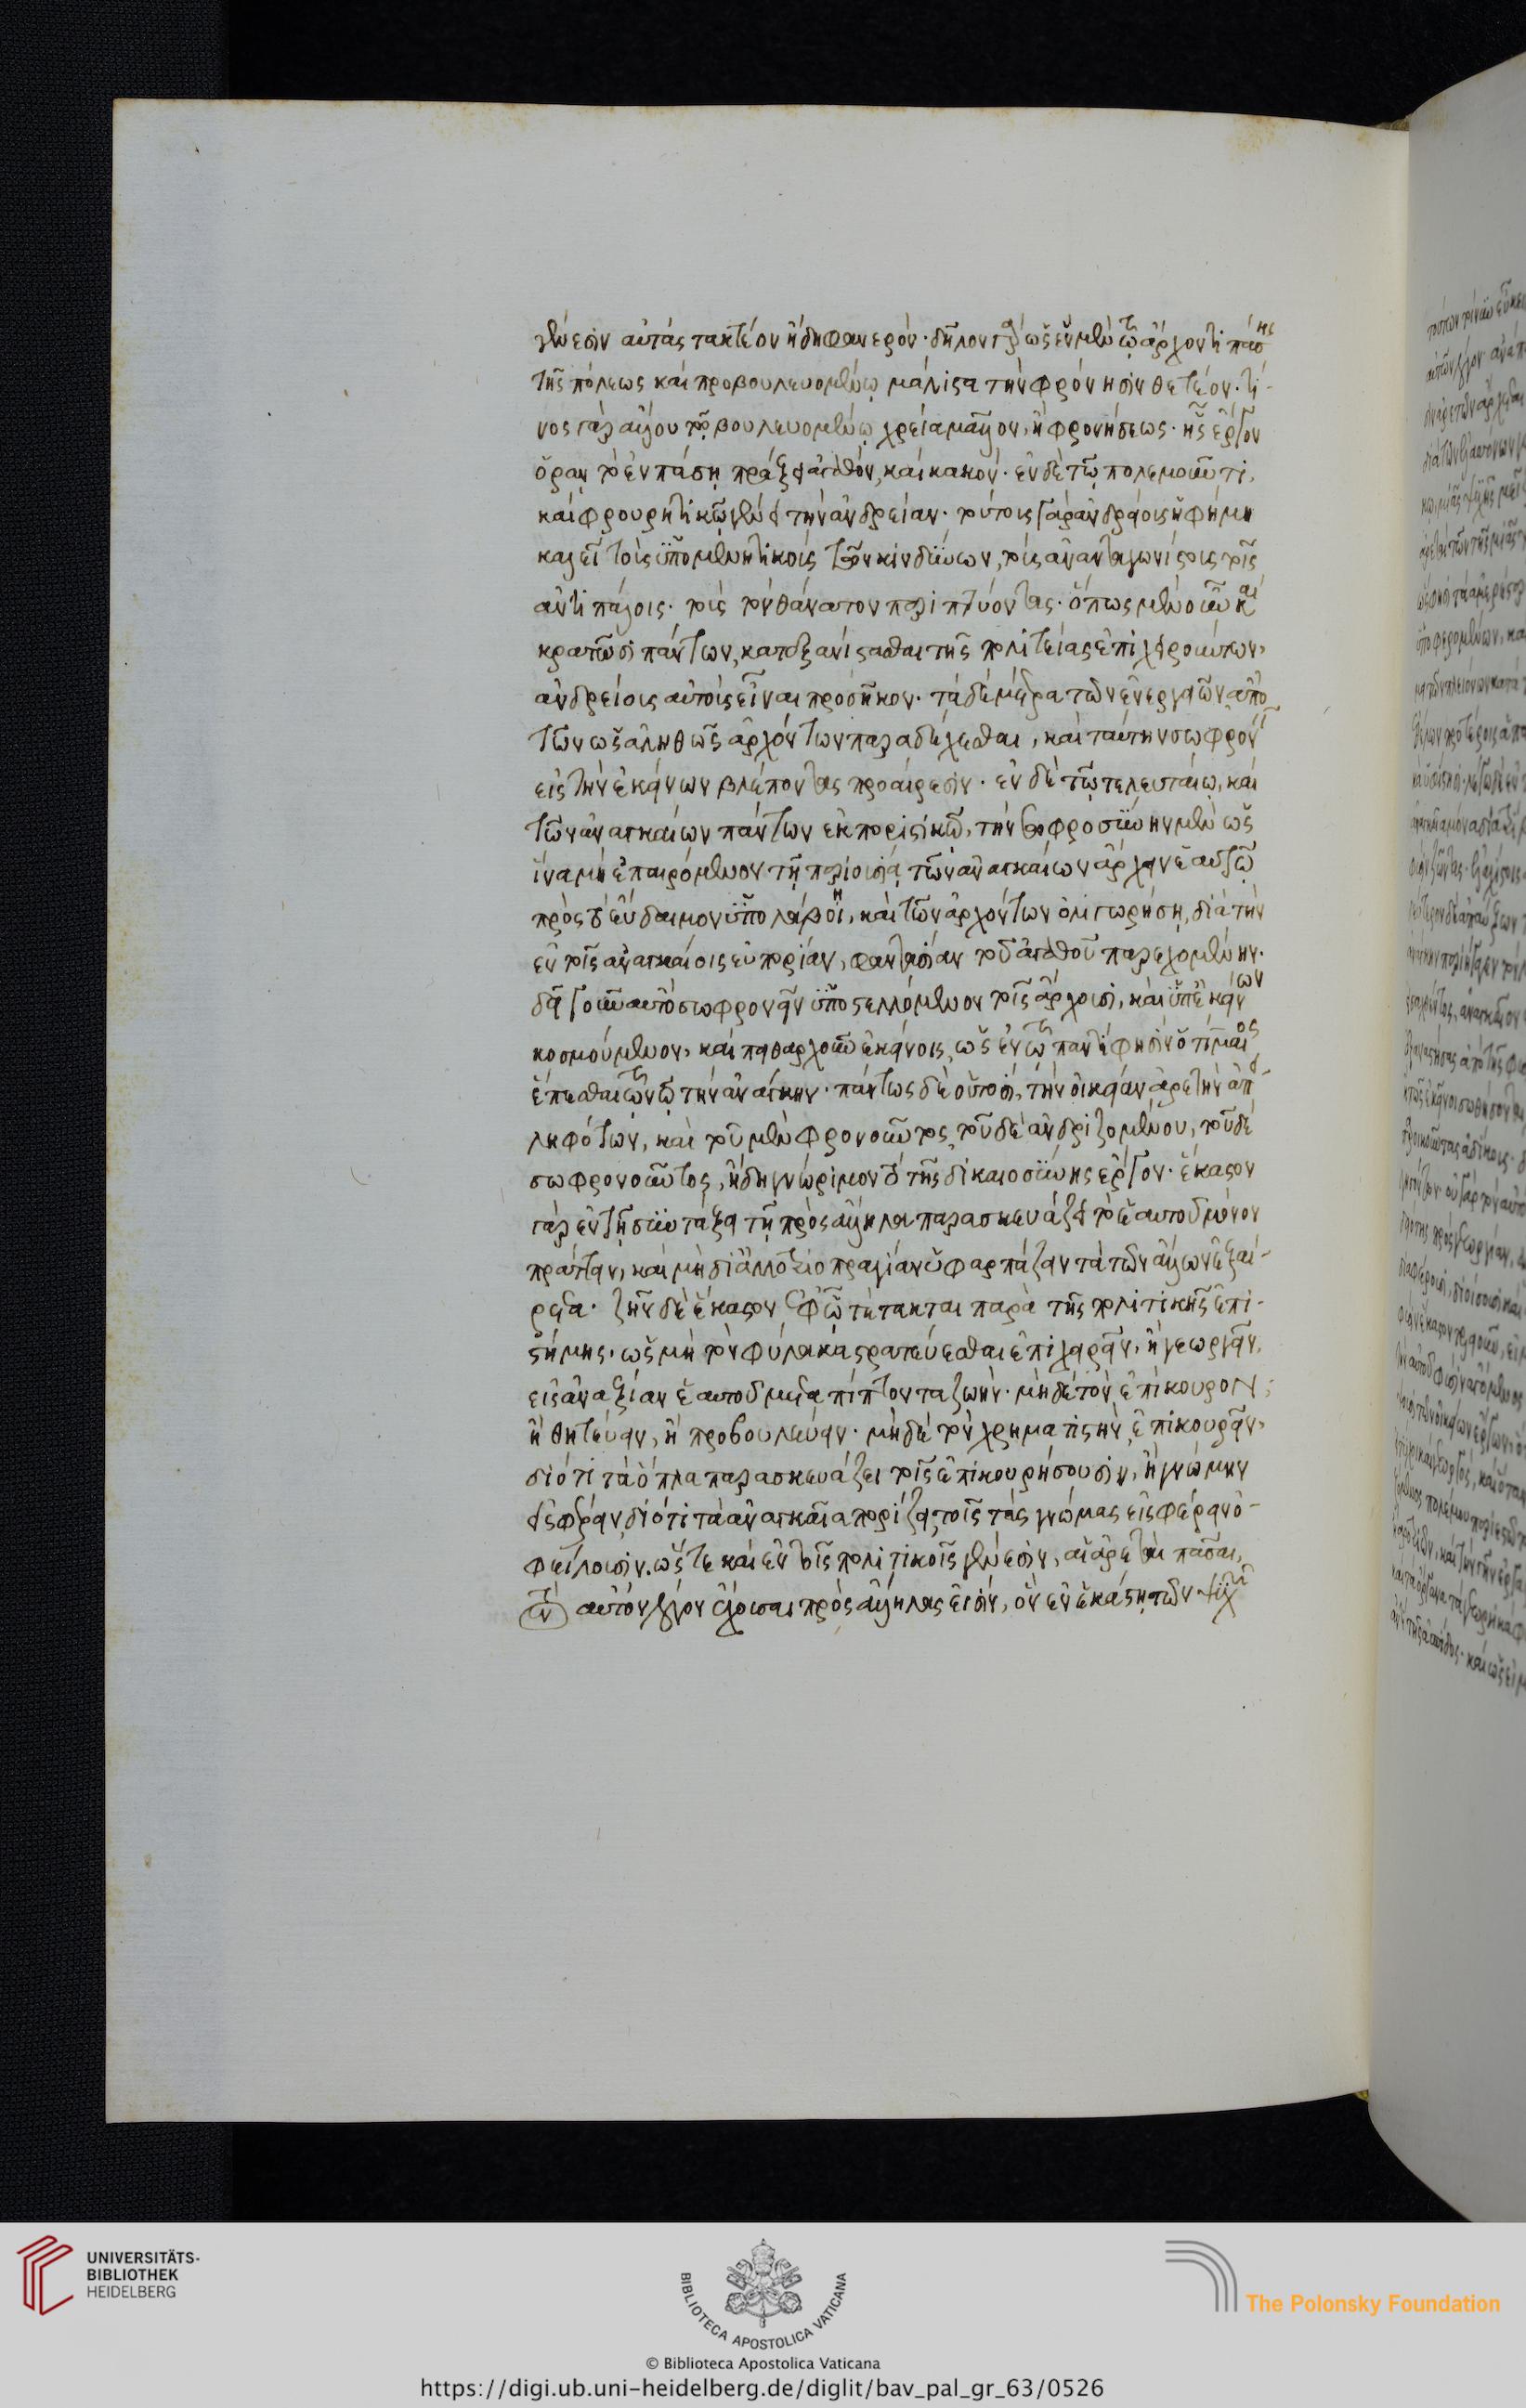 γένεσιν αὐτὰς τακτέον ἤδη φανερόν· δῆλον γὰρ ὡς ἐν μὲν τῷ ἄρχοντι πάσης
τῆς πόλεως καὶ προβουλευομένῳ μάλιστα τὴν φρόνησιν θετέον· τί-
νος γὰρ ἄλλου προβουλευομένῳ χρεία μᾶλλον, ἢ φρονήσεως· ἧς ἔργον
ὁρᾶν τὸ ἐν πάσῃ πράξει ἀγαθόν, καὶ κακόν· ἐν δὲ τῷ πολεμοῦντι,
καὶ φρουρητικῷ γένει τὴν ἀνδρείαν· τούτοις γὰρ ἀνδρείοις ἡ φήμη
καλεῖ τοῖς ὑπομενητικοῖς τῶν κινδύνων, τοῖς ἀνανταγωνίστοις τοῖς
ἀντιπάλοις· τοῖς τὸν θάνατον περιπτύοντας· ὅπως μὲν οὖν καὶ
κρατῶσι πάντων, κατεξανίστασθαι τῆς πολιτείας ἐπιχειρούντων,
ἀνδρείοις αὐτοῖς εἶναι προσῆκον· τὰ δὲ μέτρα τῶν ἐνεργειῶν ἀπὸ
τῶν ὡς ἀληθῶς ἀρχόντων παραδέχεσθαι, καὶ ταύτην σωφρον
εἰς τὴν ἐκείνων βλέποντας προαίρεσιν· ἐν δὲ τῷ τελευταίῳ, καὶ
τῶν ἀναγκαίων πάντων ἐκποριστικῷ, τὴν σωφροσύνην μὲν ὡς
ἵνα μὴ ἐπαιρόμενον τῇ περιουσίᾳ τῶν ἀναγκαίων ἄρχειν ἑαυτῷ
πρὸς τὸ εὔδαιμον ὑπολάβοι, καὶ τῶν ἀρχόντων ὀλιγωρήσῃ, διὰ τὴν
ἐν τοῖς ἀναγκαίοις εὐπορίαν, φαντασίαν τοῦ ἀγαθοῦ παρεχομένην·
δεῖ γοῦν αὐτὸ σωφρονεῖν ὑποστελλόμενον τοῖς ἄρχουσι, καὶ ὑπ' ἐκείνων
κοσμούμενον, καὶ πειθαρχοῦν ἐκείνοις, ὡς ἐν τῷ παντί φησιν ὁ τίμαιος
ἕπεσθαι τῷ νῷ τὴν ἀνάγκην· πάντως δὲ οὕτωσι, τὴν οἰκείαν ἀρετὴν ἀπει-
ληφότων, καὶ τοῦ μὲν φρονοῦντος, τοῦ δὲ ἀνδριζομένου, τοῦ δὲ
σωφρονοῦντος, ἤδη γνώριμον τὸ τῆς δικαιοσύνης ἔργον· ἕκαστον
γὰρ ἐν τῇ συντάξει τῇ πρὸς ἄλληλα παρασκευάζει τὸ ἑαυτοῦ μόνον
πράττειν, καὶ μὴ δι' ἀλλοτριοπραγίαν ὑφαρπάζειν τὰ τῶν ἄλλων ἐξαί-
ρετα· ζῆν δὲ ἕκαστον ἐφ' ᾧ τέτακται παρὰ τῆς πολιτικῆς ἐπι-
στήμης· ὡς μὴ τὸν φύλακα στρατεύεσθαι ἐπιχειρεῖν, ἢ γεωργεῖν,
εἰς ἀναξίαν ἑαυτοῦ μεταπίπτοντα ζωήν· μηδὲ τὸν ἐπίκουρον,
ἢ θητεύειν, ἢ προβουλεύειν· μηδὲ τὸν χρηματιστὴν ἐπικουρεῖν,
διότι τὰ ὅπλα παρασκευάζει τοῖς ἐπικουρήσουσιν, ἢ γνώμην
εἰσφέρειν διότι τὰ ἀναγκαῖα πορίζει τοῖς τὰς γνώμας εἰσφέρειν ὀ-
φείλουσιν. ὥστε καὶ ἐν τοῖς πολιτικοῖς γένεσιν, αἱ ἀρεταὶ πᾶσαι,
τὸν αὐτὸν λόγον ἔχουσαι πρὸς ἀλλήλας εἰσίν, ὃν ἐν ἑκάστῃ τῶν ψυχῶν
UNIVERSITÄTS-
BIBLIOTHEK
HEIDELBERG
BIBLIOTECA APOSTOLICA VATICANA
The Polonsky Foundation
© Biblioteca Apostolica Vaticana
https://digi.ub.uni-heidelberg.de/diglit/bav_pal_gr_63/0526